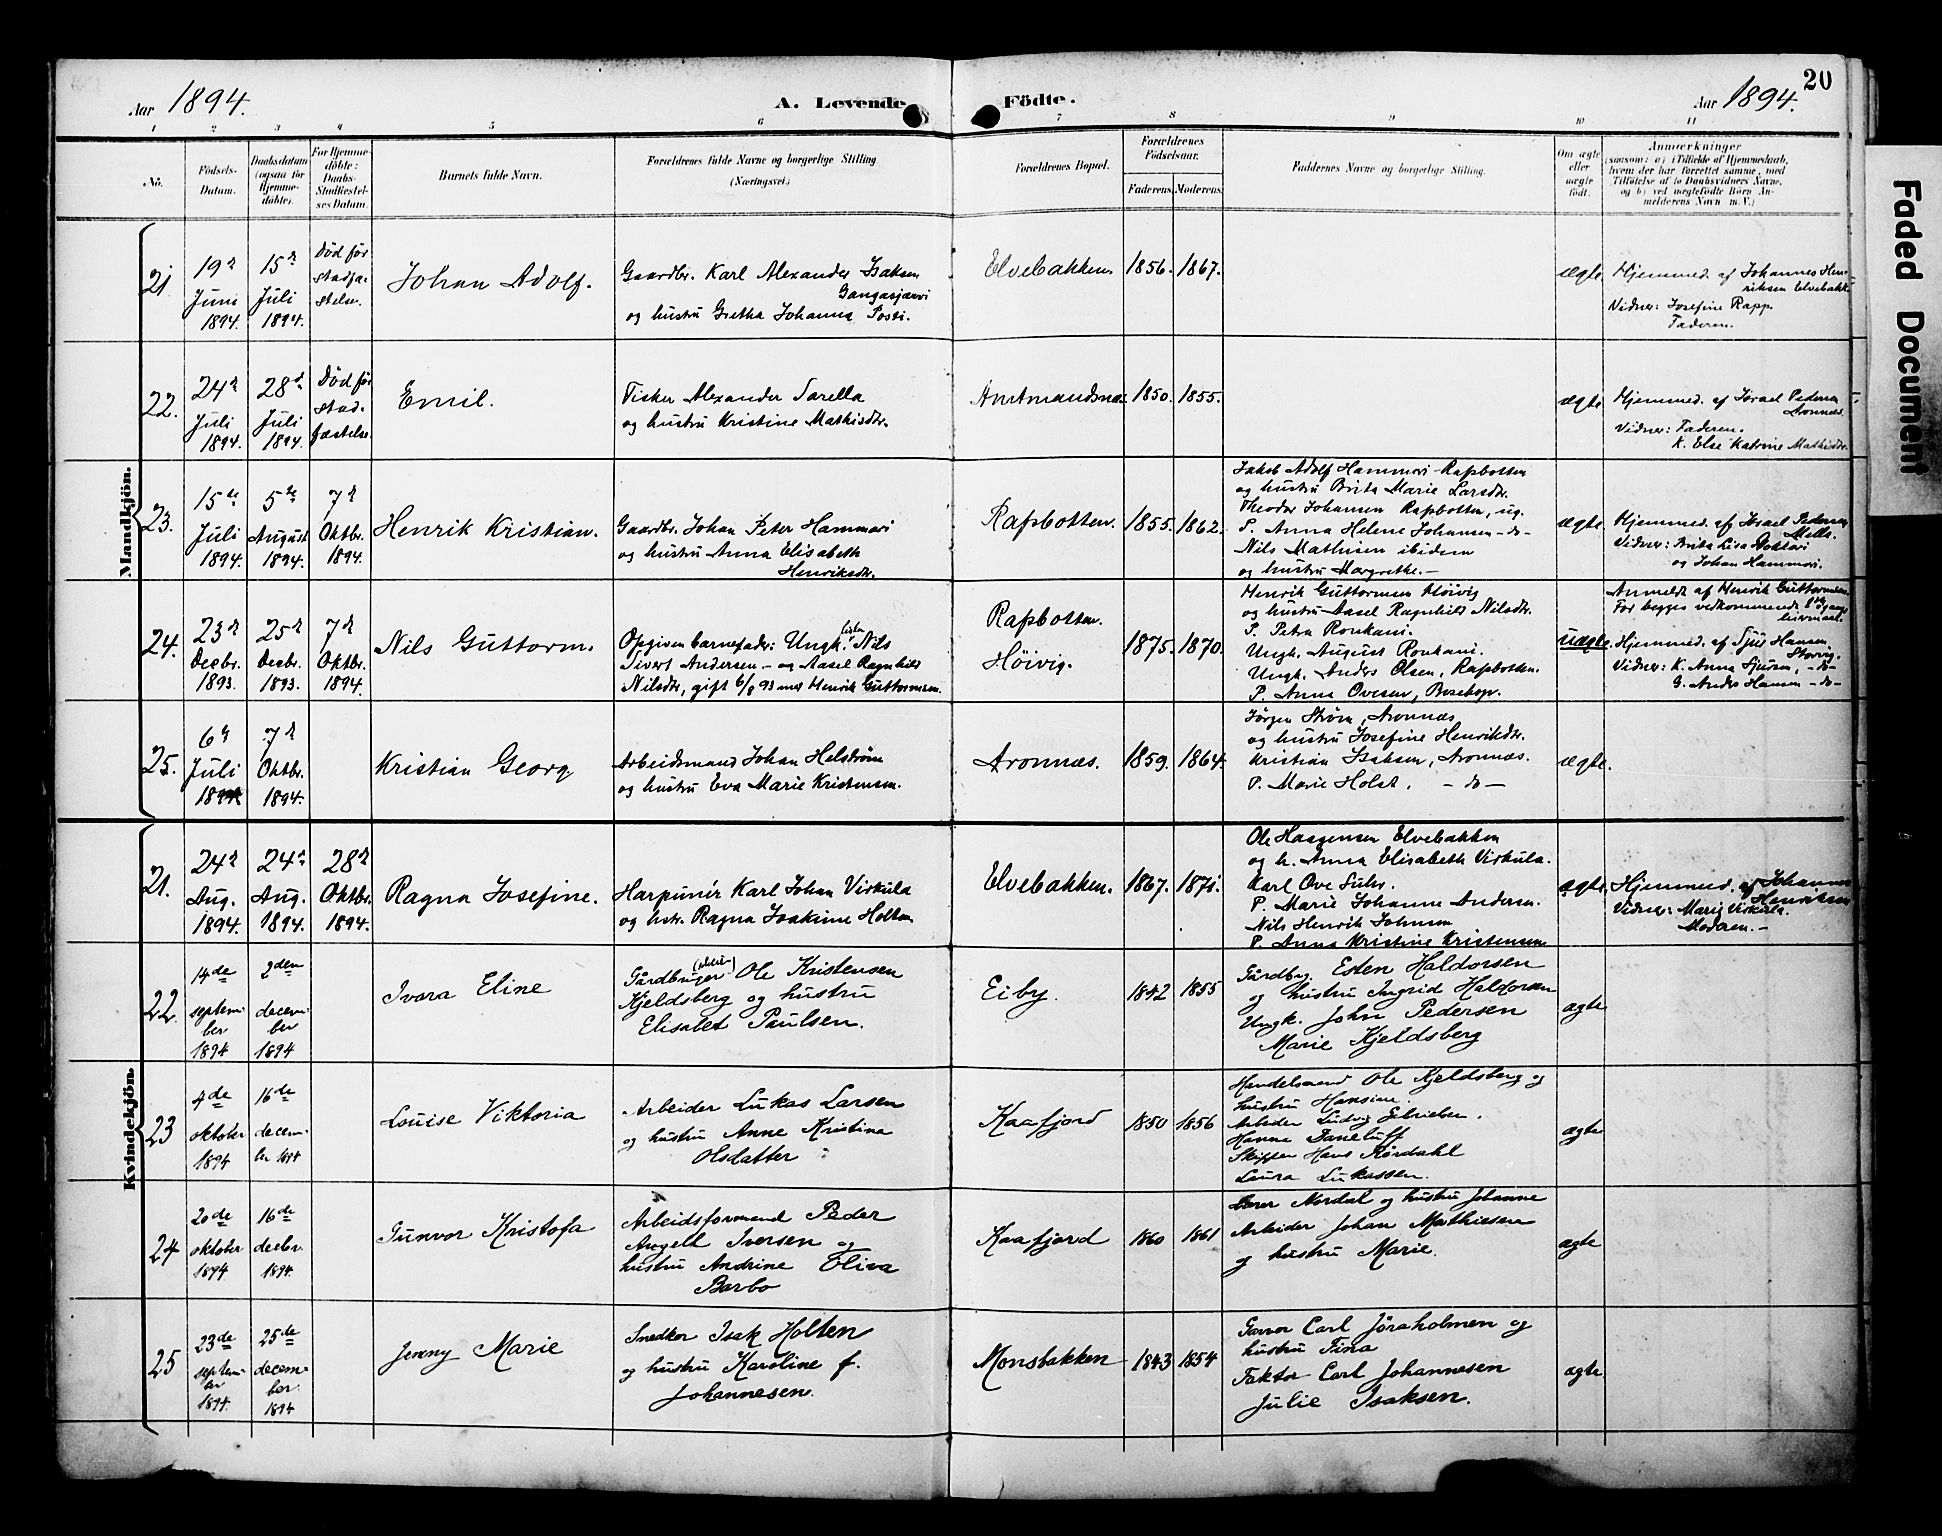 20
Aar 1894.
A. Levende Födte.
Aar 1894.
1 2 3 4 5 6 7 8 9 10 11
No.
Födsels-
Datum.
Daabsdatum
(ogsaa for
Hjemme-
döbte).
For Hjemme-
döbte:
Daabs-
Stadfæstel-
ses Datum.
Barnets fulde Navn.
Forældrenes fulde Navne og borgerlige Stilling
(Næringsvei.)
Forældrenes Bopæl.
Forældrenes
Födselsaar.
Faderens. Moderens.
Faddernes Navne og borgerlige Stilling.
Om ægte
eller
uægte
födt.
Anmærkninger
(saasom: a) i Tilfælde af Hjemmedaab,
hvem der har forrettet samme, med
Tilföielse af to Daabsvidners Navne,
og b) ved uægtefödte Börn An-
melderens Navn m.V.)
Mandkjön.
21
19de
Juni
1894.
15de
Juli
1894.
Död før
stadfæ-
stelse.
Johan Adolf.
Gaardbr. Karl Alexander Isaksen
Gangasjærvi
og hustru Gretha Johanna Posti.
Elvebakken.
1856. 1867.
ægte
Hjemmed. af Johannes Hen-
riksen Elvebakk.
Vidner: Josefine Rapp.
Faderen.
22.
24de
Juli
1894.
28de
Juli
1894.
Död før
stad-
fæstelse.
Emil.
Fisker Alexander Sarella
og hustru Kristine Mathisdtr.
Amtmandsnæs.
1850. 1855.
ægte
Hjemmed. af Israel Pedersen
Aronnæs.
Vidner: Faderen.
K. Else Katrine Mathisdtr.
23.
15de
Juli
1894.
5te
August
1894.
7de
Oktbr.
1894.
Henrik Kristian.
Gaardbr. Johan Peter Hammari
og hustru Anna Elisabeth
Henriksdtr.
Rafsbotten.
1855. 1862.
Jakob Adolf Hammari Rafsbotten
og hustru Brita Marie Larsdtr.
Theodor Johansen Rafsbotten, ug.
P. Anna Helene Johansen -do-
Nils Mathisen ibidem
og hustru Margrethe.-
ægte
Hjemmed. af Israel Pedersen
Vidner: Brita Lisa
og Johan Hammari.
24.
23de
Decbr.
1893.
25de
Decbr.
1893.
7de
Oktbr.
1894.
Nils Guttorm.
Opgiven barnefader: Ungk. Nils
Sivert Andersen - og Aasel Ragnhild
Nilsdtr, gift 6/8 93 med Henrik Guttormsen.
Rafsbotten.
Höivig.
1875. 1870.
Henrik Guttormsen Höivig
og hustru Aasel Ragnhild Nilsdtr.
P. Petra Ronkani.
Ungk. August Ronkani.
Ungk. Anders Olsen, Rafsbotten.
P. Anna Ovesen, Bosekop.
uægte
Anmeldt af Henrik Guttormsen.
For begges vedkommende 1ste gangs
leiermaal.
Hjemmed. af Sjul Hansen
Storvig.
Vidner: K. Anna Sjulsen, -do-
G. Anders Hansen -do-
25.
6te
Juli
1894
7de
Oktbr.
1894.
Kristian Georg
Arbeidsmand Johan Helström
og hustru Eva Marie Kristensen.
Aronnæs.
1859. 1864.
Jørgen Ström, Aronnæs
og hustru Josefine Henriksdtr.
Kristian Isaksen, Aronnæs.
P. Marie Holst. -do-
ægte.
Kvindekjön.
21.
24de
Aug.
1894.
24de
Aug.
1894.
28de
Oktbr.
1894.
Ragna Josefine.
Harpunér Karl Johan Virkula
og hstr. Ragna Joakime Holten
Elvebakken.
1867. 1871.
Ole Haagensen Elvebakken
og h. Anna Elisabeth Virkula.
Karl Ove Suhr.
P. Marie Johanne Andersen.
Nils Henrik Johnsen
P. Anna Kristine Kristensen
ægte
Hjemmed. af Johannes
Henriksen
Vidner: Marie Virkula.
Moderen.-
22.
14de
septem-
ber
1894
2den
decem-
ber
1894
Ivara Eline
Gårdbruger Ole Kristensen
Kjeldsberg og hustru
Elisabet Paulsen.
Eiby.
1842 1855
Gårdbrg. Esten Haldorsen
og hustru Ingrid Haldorsen
Ungk. John Pedersen
Marie Kjeldsberg
ægte
23
4de
oktober
1894
16de
decem-
ber 1894
Louise Viktoria
Arbeider Lukas Larsen
og hustru Anne Kristina
Olsdatter
Kaafjord
1850 1856
Handelsmand Ole Kjeldsberg og
hustru Hansine.
Arbeider Ludvig
Hanna Daneluff
Skipper Hans Rørdahl
Laura Lukassen.
ægte
24
20de
oktober
1894
16de
decbr.
1894.
Gunvor Kristofa
Arbeidsformand Peder
Angell Iversen og
hustru Andrine Oliva
Barbo
Kaafjord
1860 1861
Lærer Nordal og hustru Johanne
Arbeider Johan Mathiesen
og hustru Marie.
ægte
25
23de
septem-
ber
1894.
25de
decem-
ber.
1894
Jenny Marie
Snedker Isak Holten
og hustru Karoline f.
Johannesen.
Monsbakken
1843 1854
Garver Carl Jöraholmen og
hustru Fina
Faktor Carl Johannesen
Julie Isaksen.
ægte
Faded Document